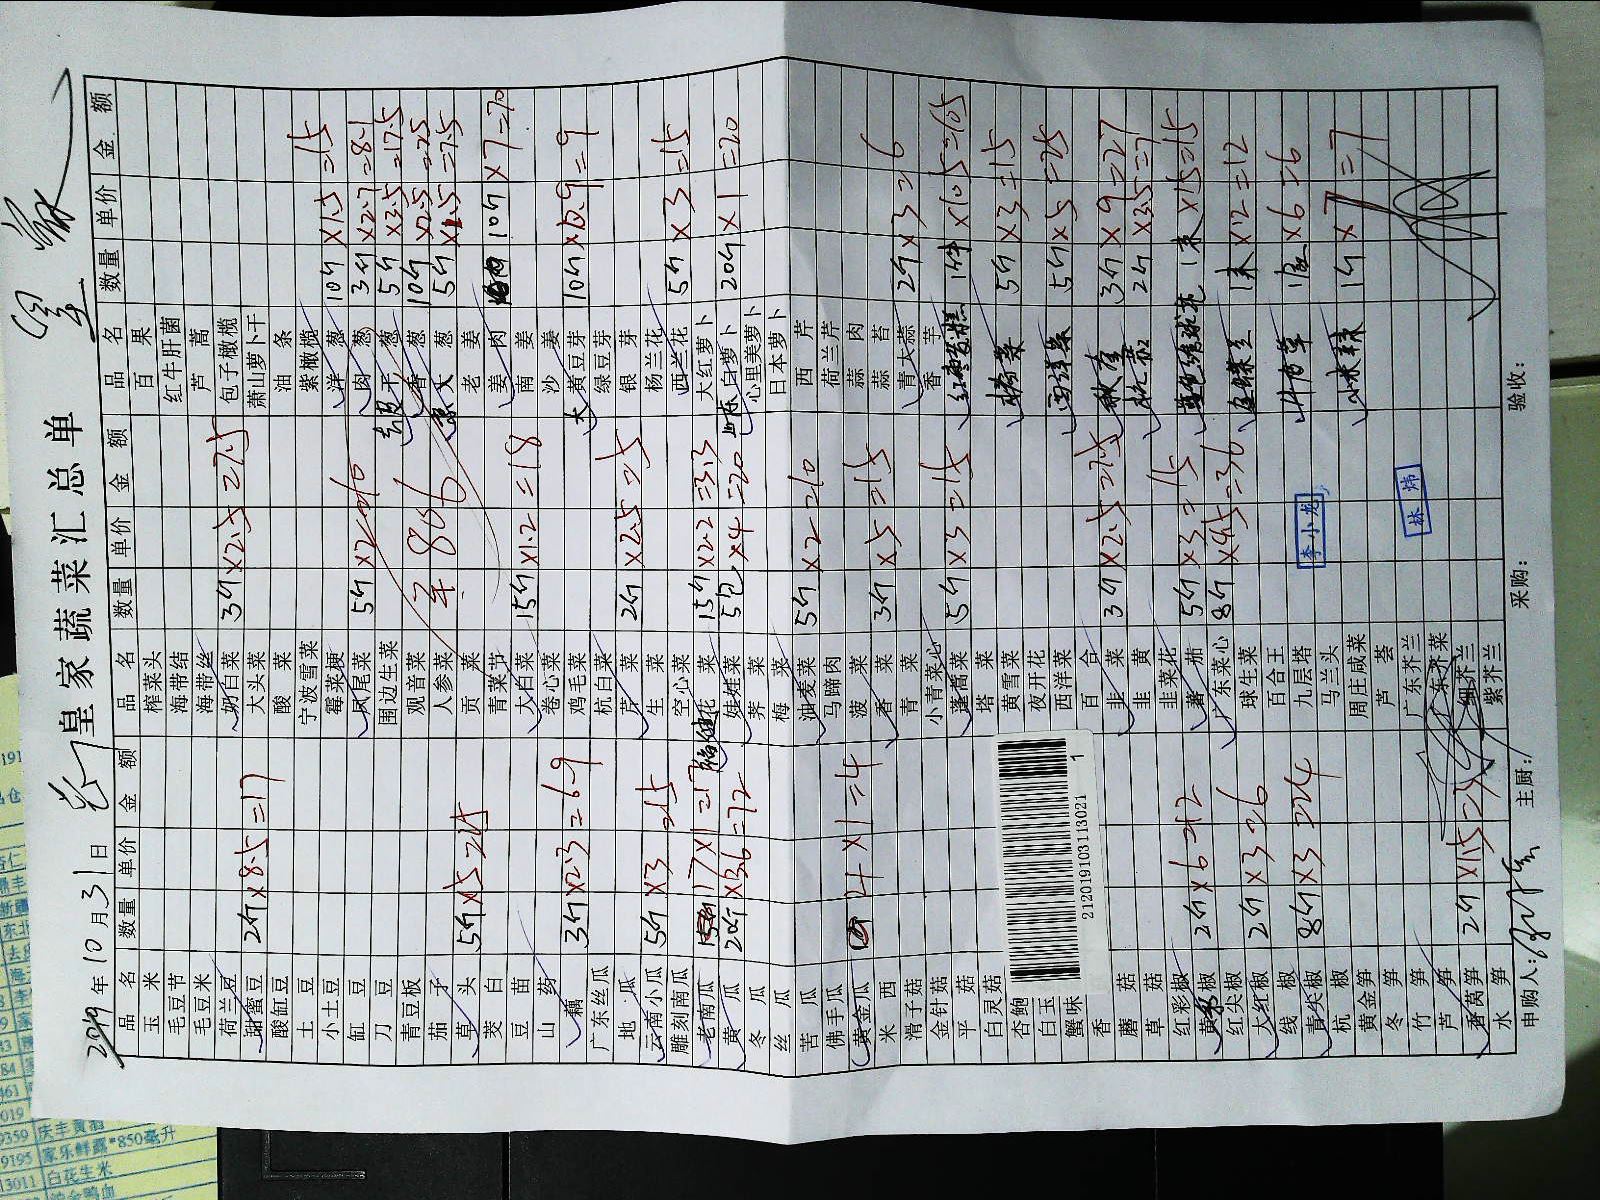 皇家蔬菜汇总单
2019年10月31日
品名 数量 单价 金额 品名 数量 单价 金额 品名 数量 单价 金额
玉米 榨菜头 百果
毛豆节 海带结 红牛肝菌
毛豆米 海带丝 芦蒿
荷兰豆 奶白菜 3斤×2.5=7.5 包子橄榄
甜蜜豆 2斤×8.5=17 大头菜 萧山萝卜干
酸缸豆 酸菜 油条
土豆 宁波雪菜 紫橄榄
小土豆 霉菜梗 洋葱 10斤×1.5=15
缸豆 凤尾菜 5斤×2=10 肉葱 3斤×2.7=8.1
刀豆 围边生菜 葱 5斤×3.5=17.5
青豆板 观音菜 香葱 10斤×2.5=25
茄子 人参菜 大葱 5斤×1.5=7.5
草头 5斤×5=25 贡菜 老姜
茭白 青菜 姜肉 10斤×7=70
豆苗 大白菜 15斤×1.2=18 南姜
山药 卷心菜 沙姜
藕 3斤×2.3=6.9 鸡毛菜 大黄豆芽 10斤×0.9=9
广东丝瓜 杭白菜 绿豆芽
地瓜 芹菜 2斤×2.5=5 银芽
云南小瓜 5斤×3=15 生菜 杨兰花
雕刻南瓜 空心菜 西兰花 5斤×3=15
老南瓜 17×1=17 花菜 15斤×2.2=33 大红萝卜
黄瓜 20斤×3.6=72 娃娃菜 5包×4=20 白萝卜 20斤×1=20
冬瓜 荠菜 心里美萝卜
丝瓜 梅菜 日本萝卜
苦瓜 油麦菜 5斤×2=10 西芹
佛手瓜 马蹄肉 荷兰芹
黄金瓜 4×1=4 菠菜 蒜肉
米西 香菜 3斤×5=15 蒜苔
滑子菇 青菜 青大蒜 2斤×3=6
金针菇 小青菜心 香芋
平菇 蓬蒿菜 5斤×3=15
白灵菇 塔菜
杏鲍 黄雪菜 5斤×3=15
白玉 夜开花
蟹味 西洋菜 西洋菜 5斤×5=25
香 百合
蘑菇 韭菜 3斤×2.5=7.5 秋葵 3斤×9=27
草菇 韭黄 2斤×3.5=7
红彩椒 韭菜花
黄彩椒 2斤×6=12 蕃茄 5斤×3=15 1束×15=15
红尖椒 广东菜心 8斤×4.5=36
大红椒 2斤×3=6 球生菜 1束×12=12
线椒 百合王
青尖椒 8斤×3=24 九层塔 1盒×6=6
杭椒 马兰头
黄金笋 周庄咸菜 1斤×7=7
冬笋 芦荟
竹笋 广东芥兰
芦笋 广东芥菜
香莴笋 2斤×1.5=3 细芥兰
水笋 紫芥兰
单 806
李小龙
林炜
2120191031130211
申购人: 主厨: 采购: 验收:
9359 庆丰黄酒
9195 家乐鲜露*850毫升
13011 白花生米